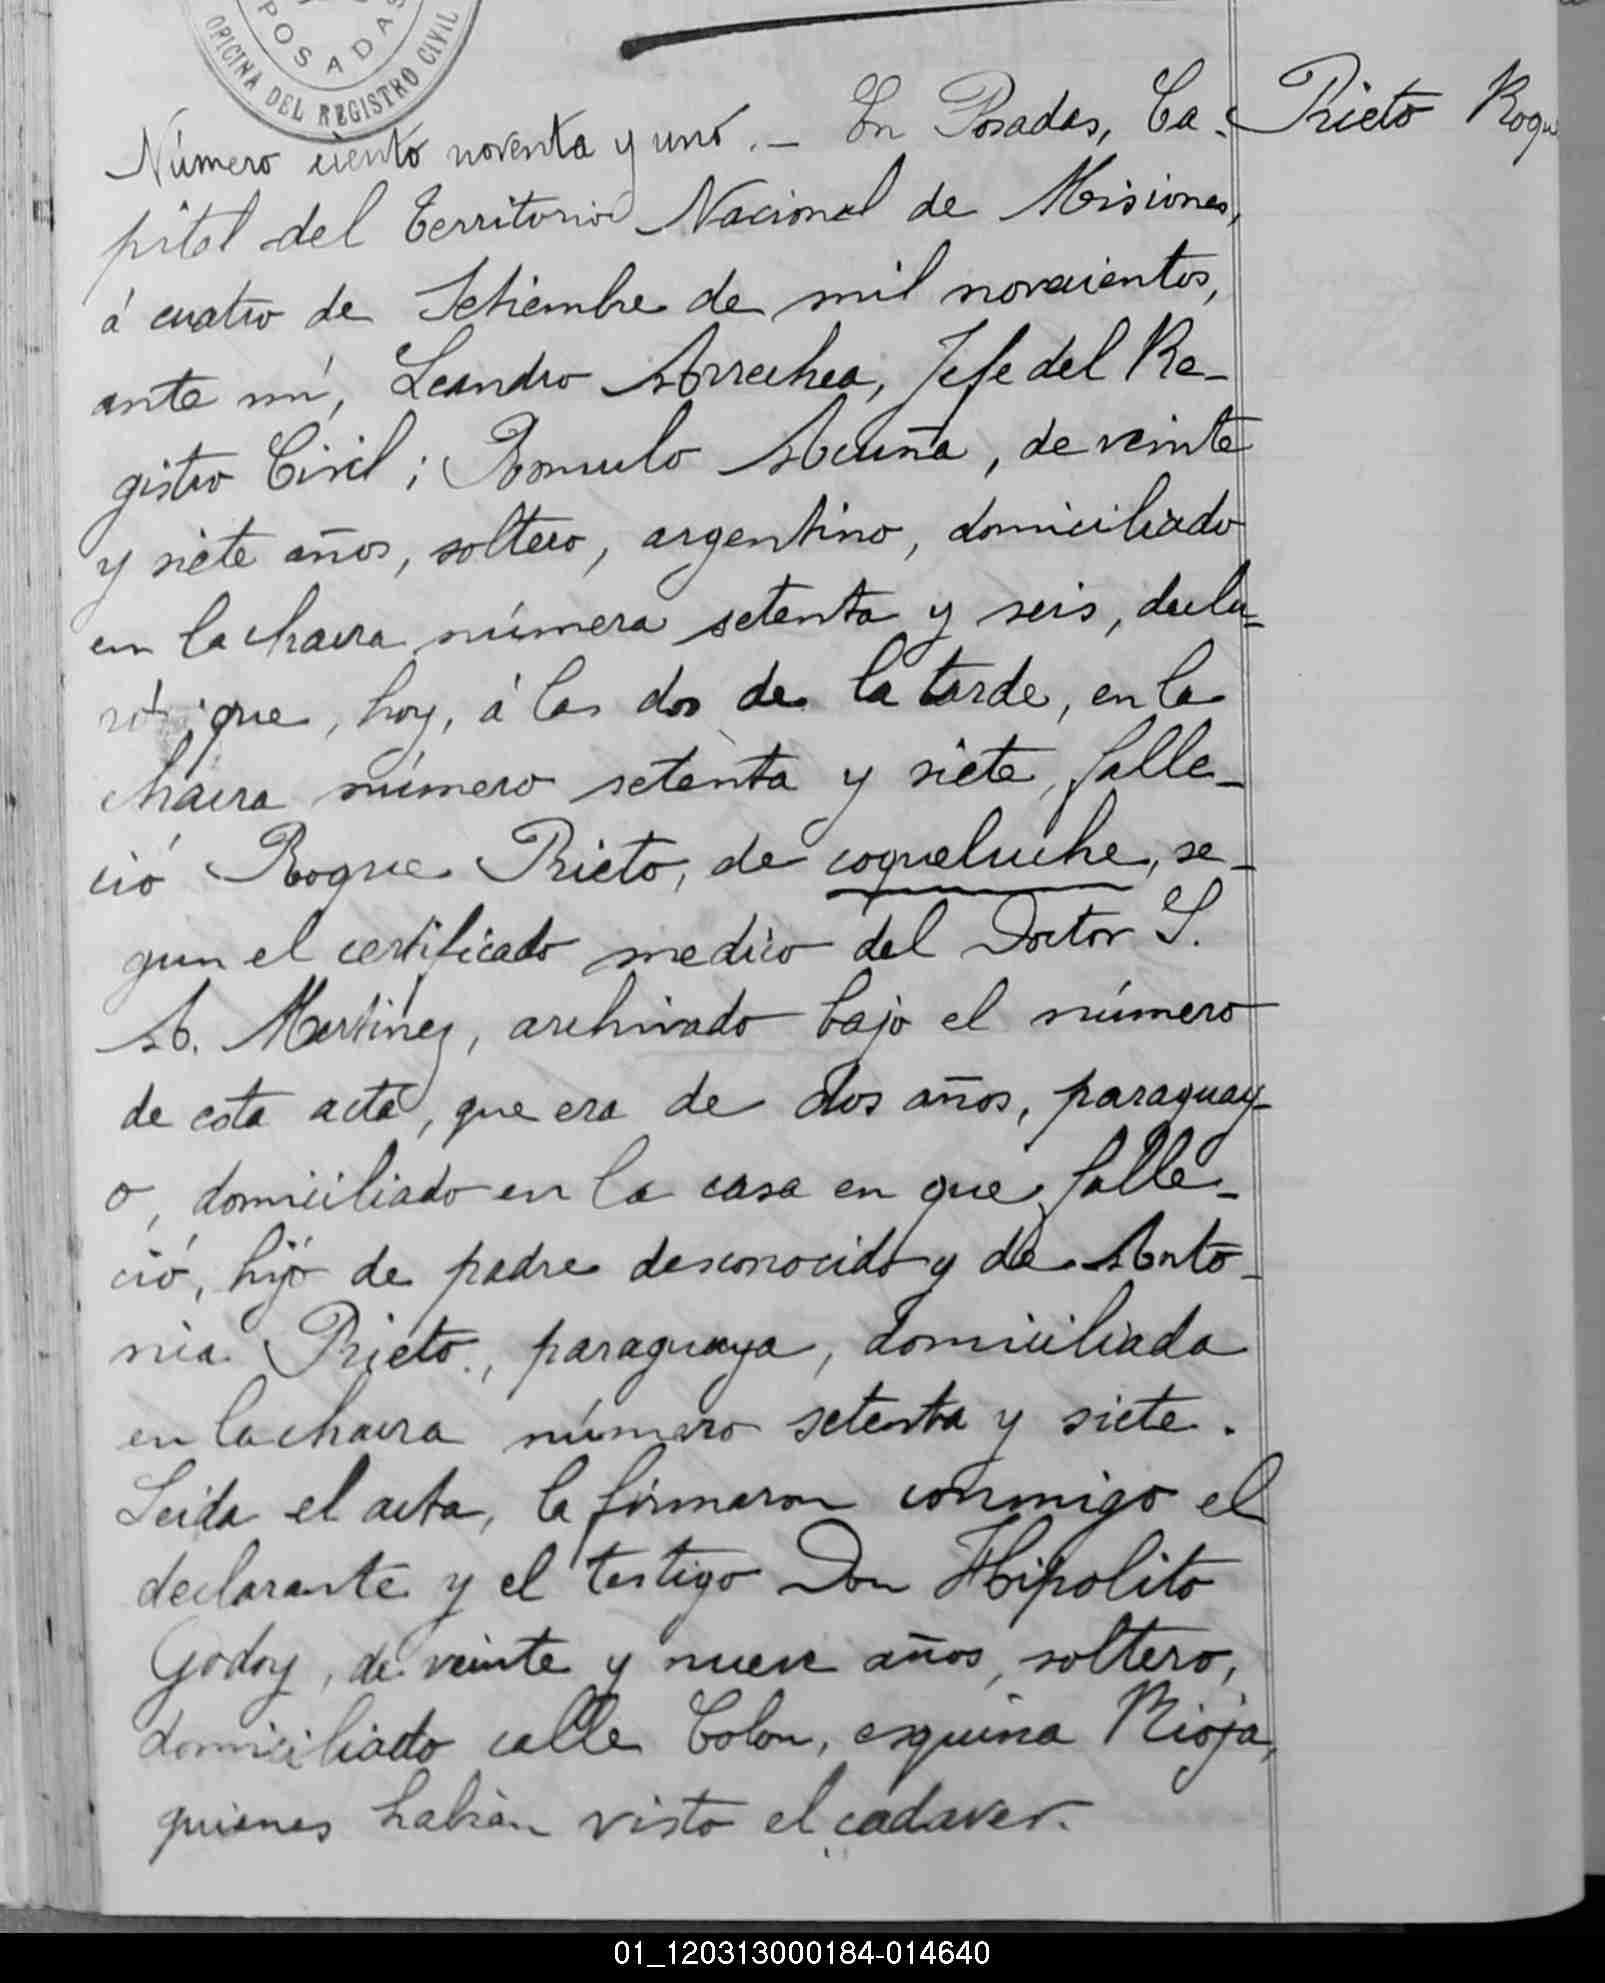 POSADAS
OFICINA DEL REGISTRO CIVIL
Número ciento noventa y uno. — En Posadas, Ca-
Prieto Roque
pital del Territorio Nacional de Misiones,
á cuatro de Setiembre de mil novecientos,
ante mí, Leandro Arrechea, Jefe del Re-
gistro Civil; Romulo Acuña, de veinte
y siete años, soltero, argentino, domiciliado
en la chacra número setenta y seis, decla-
ró que, hoy, á las dos de la tarde, en la
chacra número setenta y siete, falle-
ció Roque Prieto, de coqueluche, se-
gun el certificado medico del Doctor S.
A. Martinez, archivado bajo el número
de esta acta, que era de dos años, paraguay-
o, domiciliado en la casa en que falle-
ció, hijo de padre desconocido y de Anto-
nia Prieto, paraguaya, domiciliada
en la chacra número setenta y siete.
Leida el acta, la firmaron conmigo el
declarante y el testigo Don Hipolito
Godoy, de veinte y nueve años, soltero,
domiciliado calle Colon, esquina Rioja,
quienes habian visto el cadaver.
01_120313000184-014640